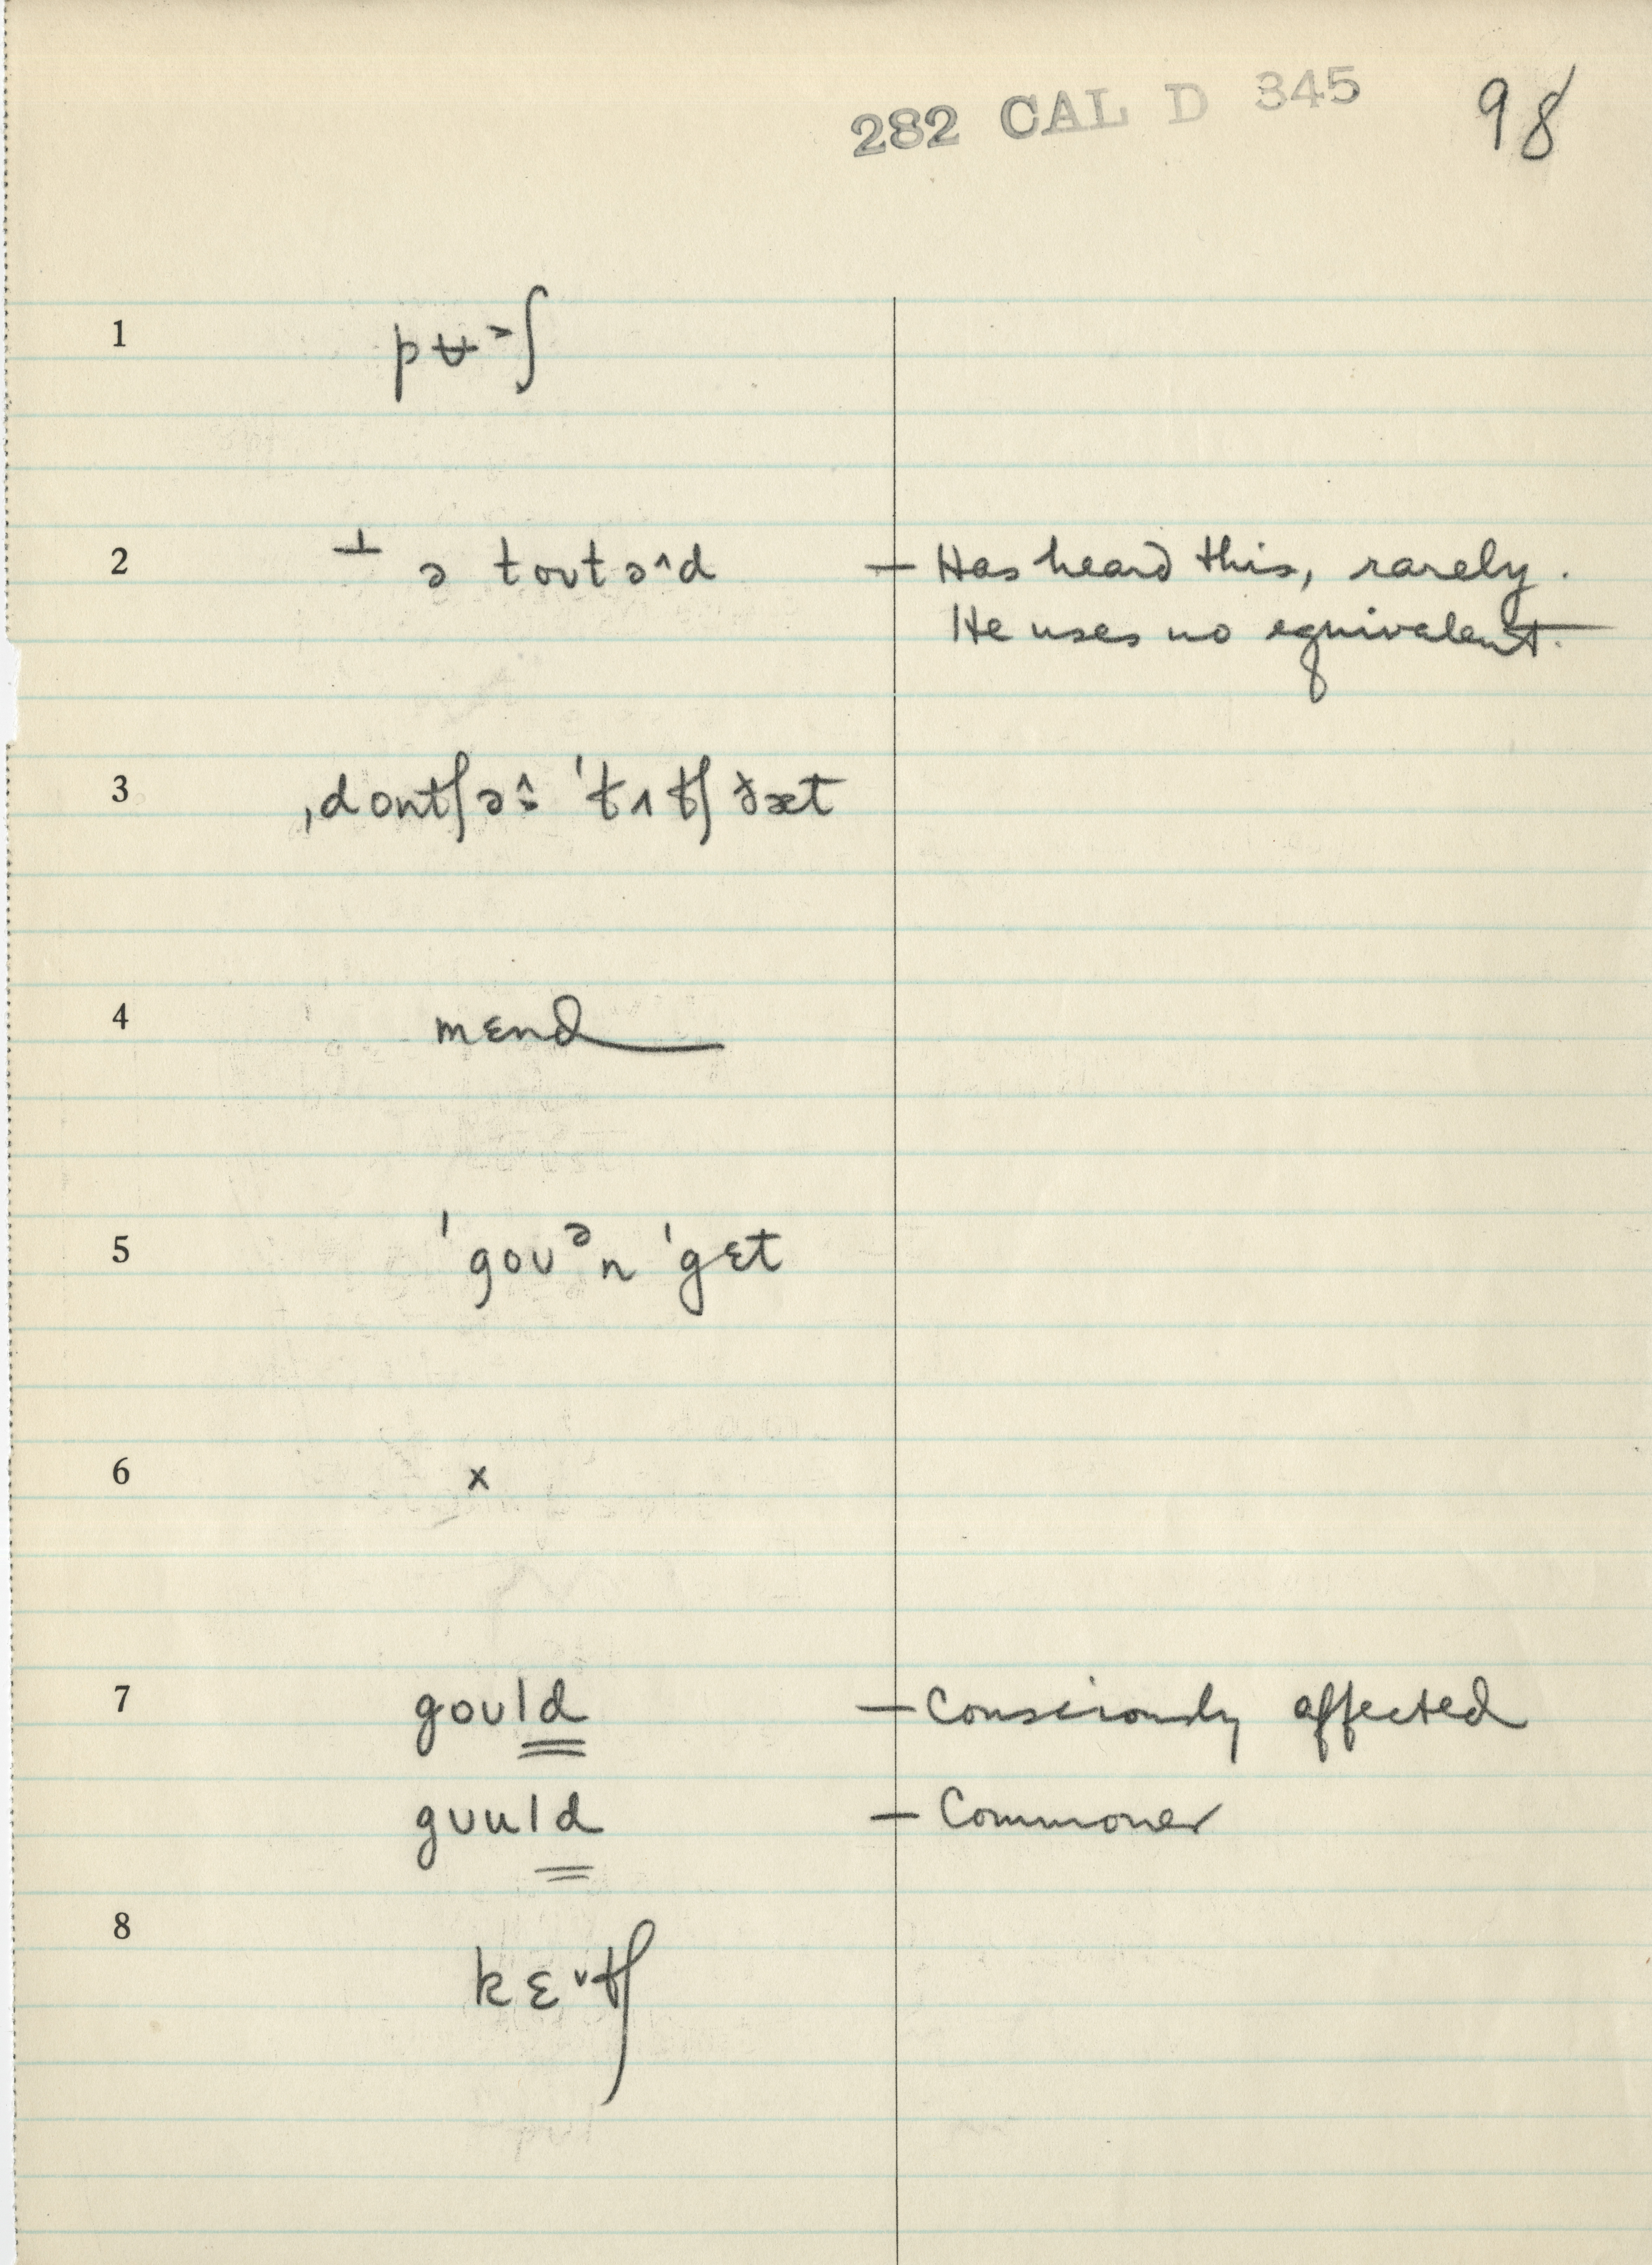 282 CAL D 345 98
1 pʉ˃ʃ
2 ⊥ ə toʊtə˄d — Has heard this, rarely.
He uses no equivalent.
3 ˌdontʃə˄: ˈtʌtʃ ðæt
4 mɛnd
5 ˈgoʊᵊn ˈgɛt
6 x
7 goʊld — Consciously affected
gʊuld — Commoner
8 kɛ˅tʃ